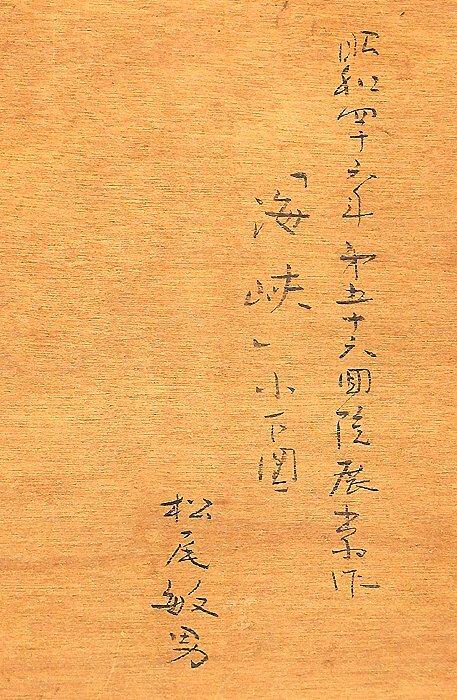 昭和四十六年第五十六回院展出品作
「海峡」小下圖
松尾敏男